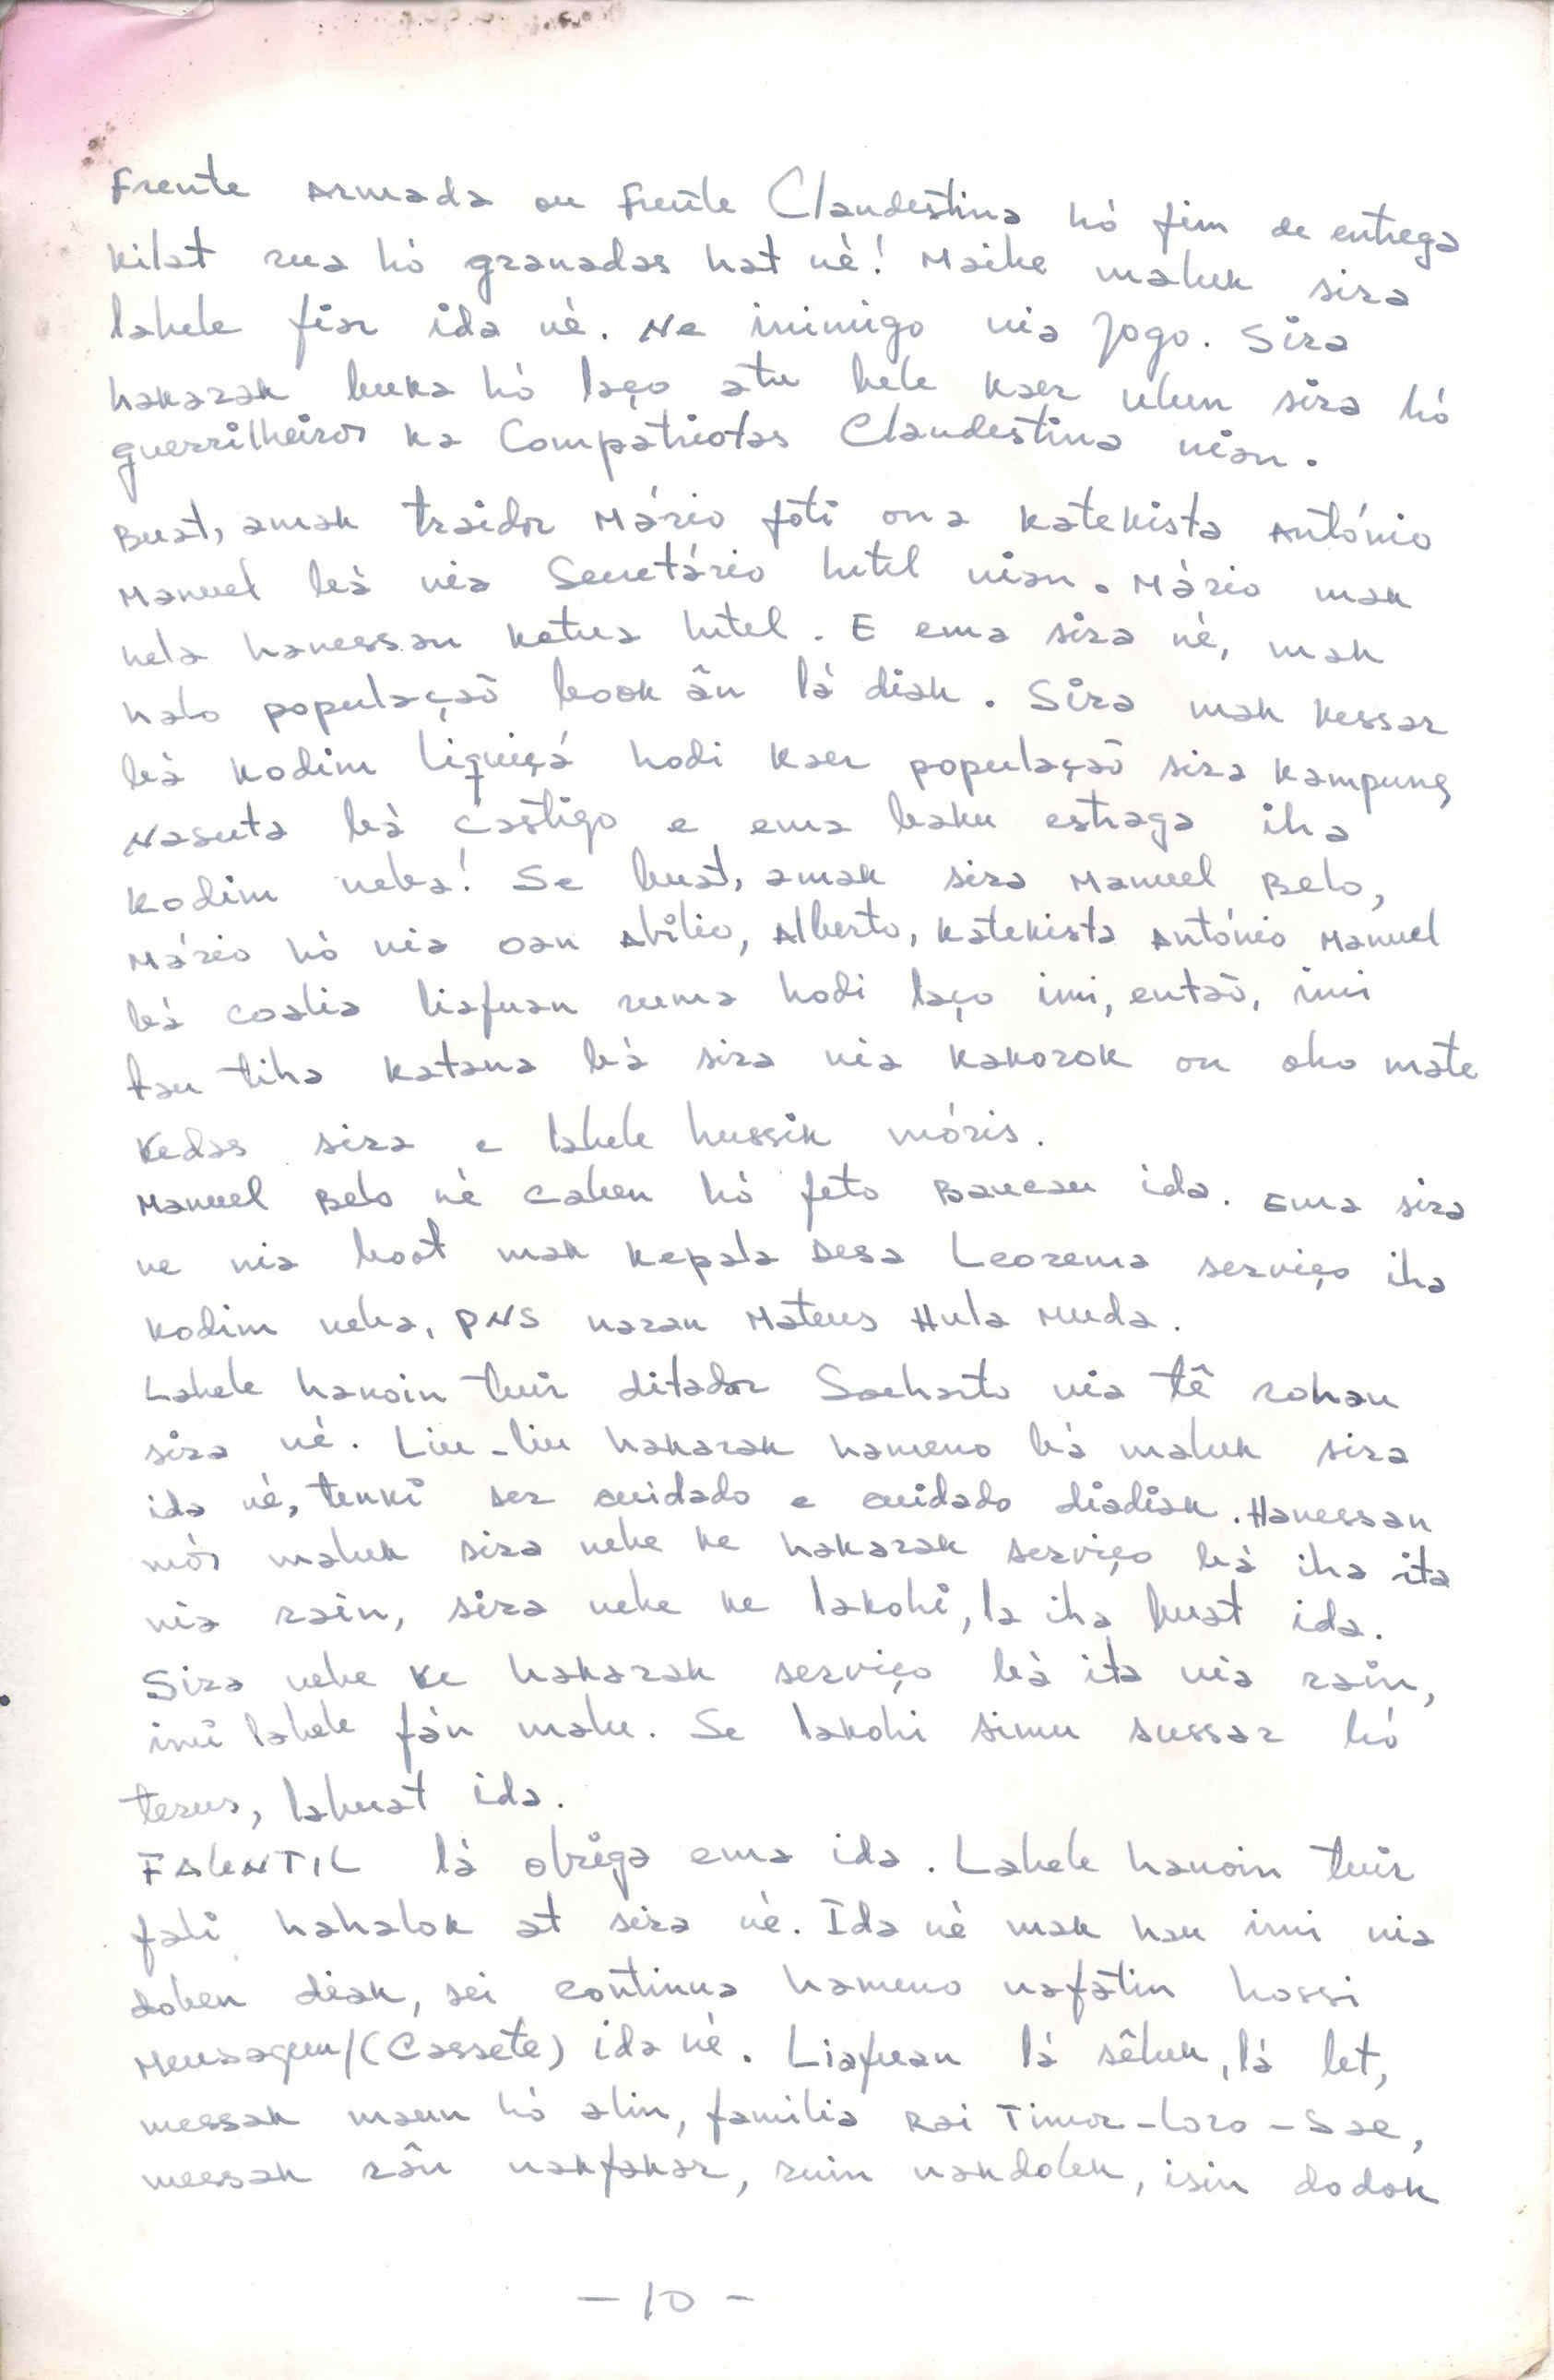 Frente Armada ou Frente Clandestina hó fim de entrega
kilat rua hó granadas hat né! Maibe maluk sira
labele fiar ida né. Ne inimigo nia jogo. Sira
hakarak buka hó laço atu bele kaer ulun sira hó
guerrilheiros ka Compatriotas Clandestina nian.
Buat, amak traidor Mário foti ona katekista António
Manuel bá nia Secretário hutel nian. Mário mak
nela hanessan ketua hutel. E ema sira né, mak
halo populaçaõ book ân lá diak. Sira mak kessar
bá Kodim Liquiçá hodi kaer populaçaõ sira kampung
Nasuta bá castigo e ema baku estraga iha
Kodim neba! Se buat, amak sira Manuel Belo,
Mário hó nia oan Abílio, Alberto, katekista António Manuel
bá coalia liafuan ruma hodi laço imi, entaõ, imi
tau tiha katana bá sira nia kakorok ou oho mate
kedas sira e labele hussik móris.
Manuel Belo né caben hó feto Baucau ida. Ema sira
ne nia boot mak kepala desa Leorema serviço iha
Kodim neba, PNS naran Mateus Hula Muda.
Labele hanoin tuir ditador Soeharto nia tê rohan
sira né. Liu-liu hakarak hameno bá maluk sira
ida né, tenki ser cuidado e cuidado diadiak. Hanessan
mós maluk sira nebe ke hakarak serviço bá iha ita
nia rain, sira nebe ke lakohi, la iha buat ida.
Sira nebe ke hakarak serviço bá ita nia rain,
imi labele fán malu. Se lakohi simu sussar hó
terus, labuat ida.
FALINTIL lá obriga ema ida. Labele hanoin tuir
fali hahalok at sira né. Ida né mak hau imi nia
doben diak, sei continua hameno nafatin hossi
Mensagem/(Cassete) ida né. Liafuan lá sêluk, lá let,
messak maun hó alin, familia Rai Timor-Loro-Sae,
messak rân nakfakar, ruin nakdolek, isin dodok
-10-